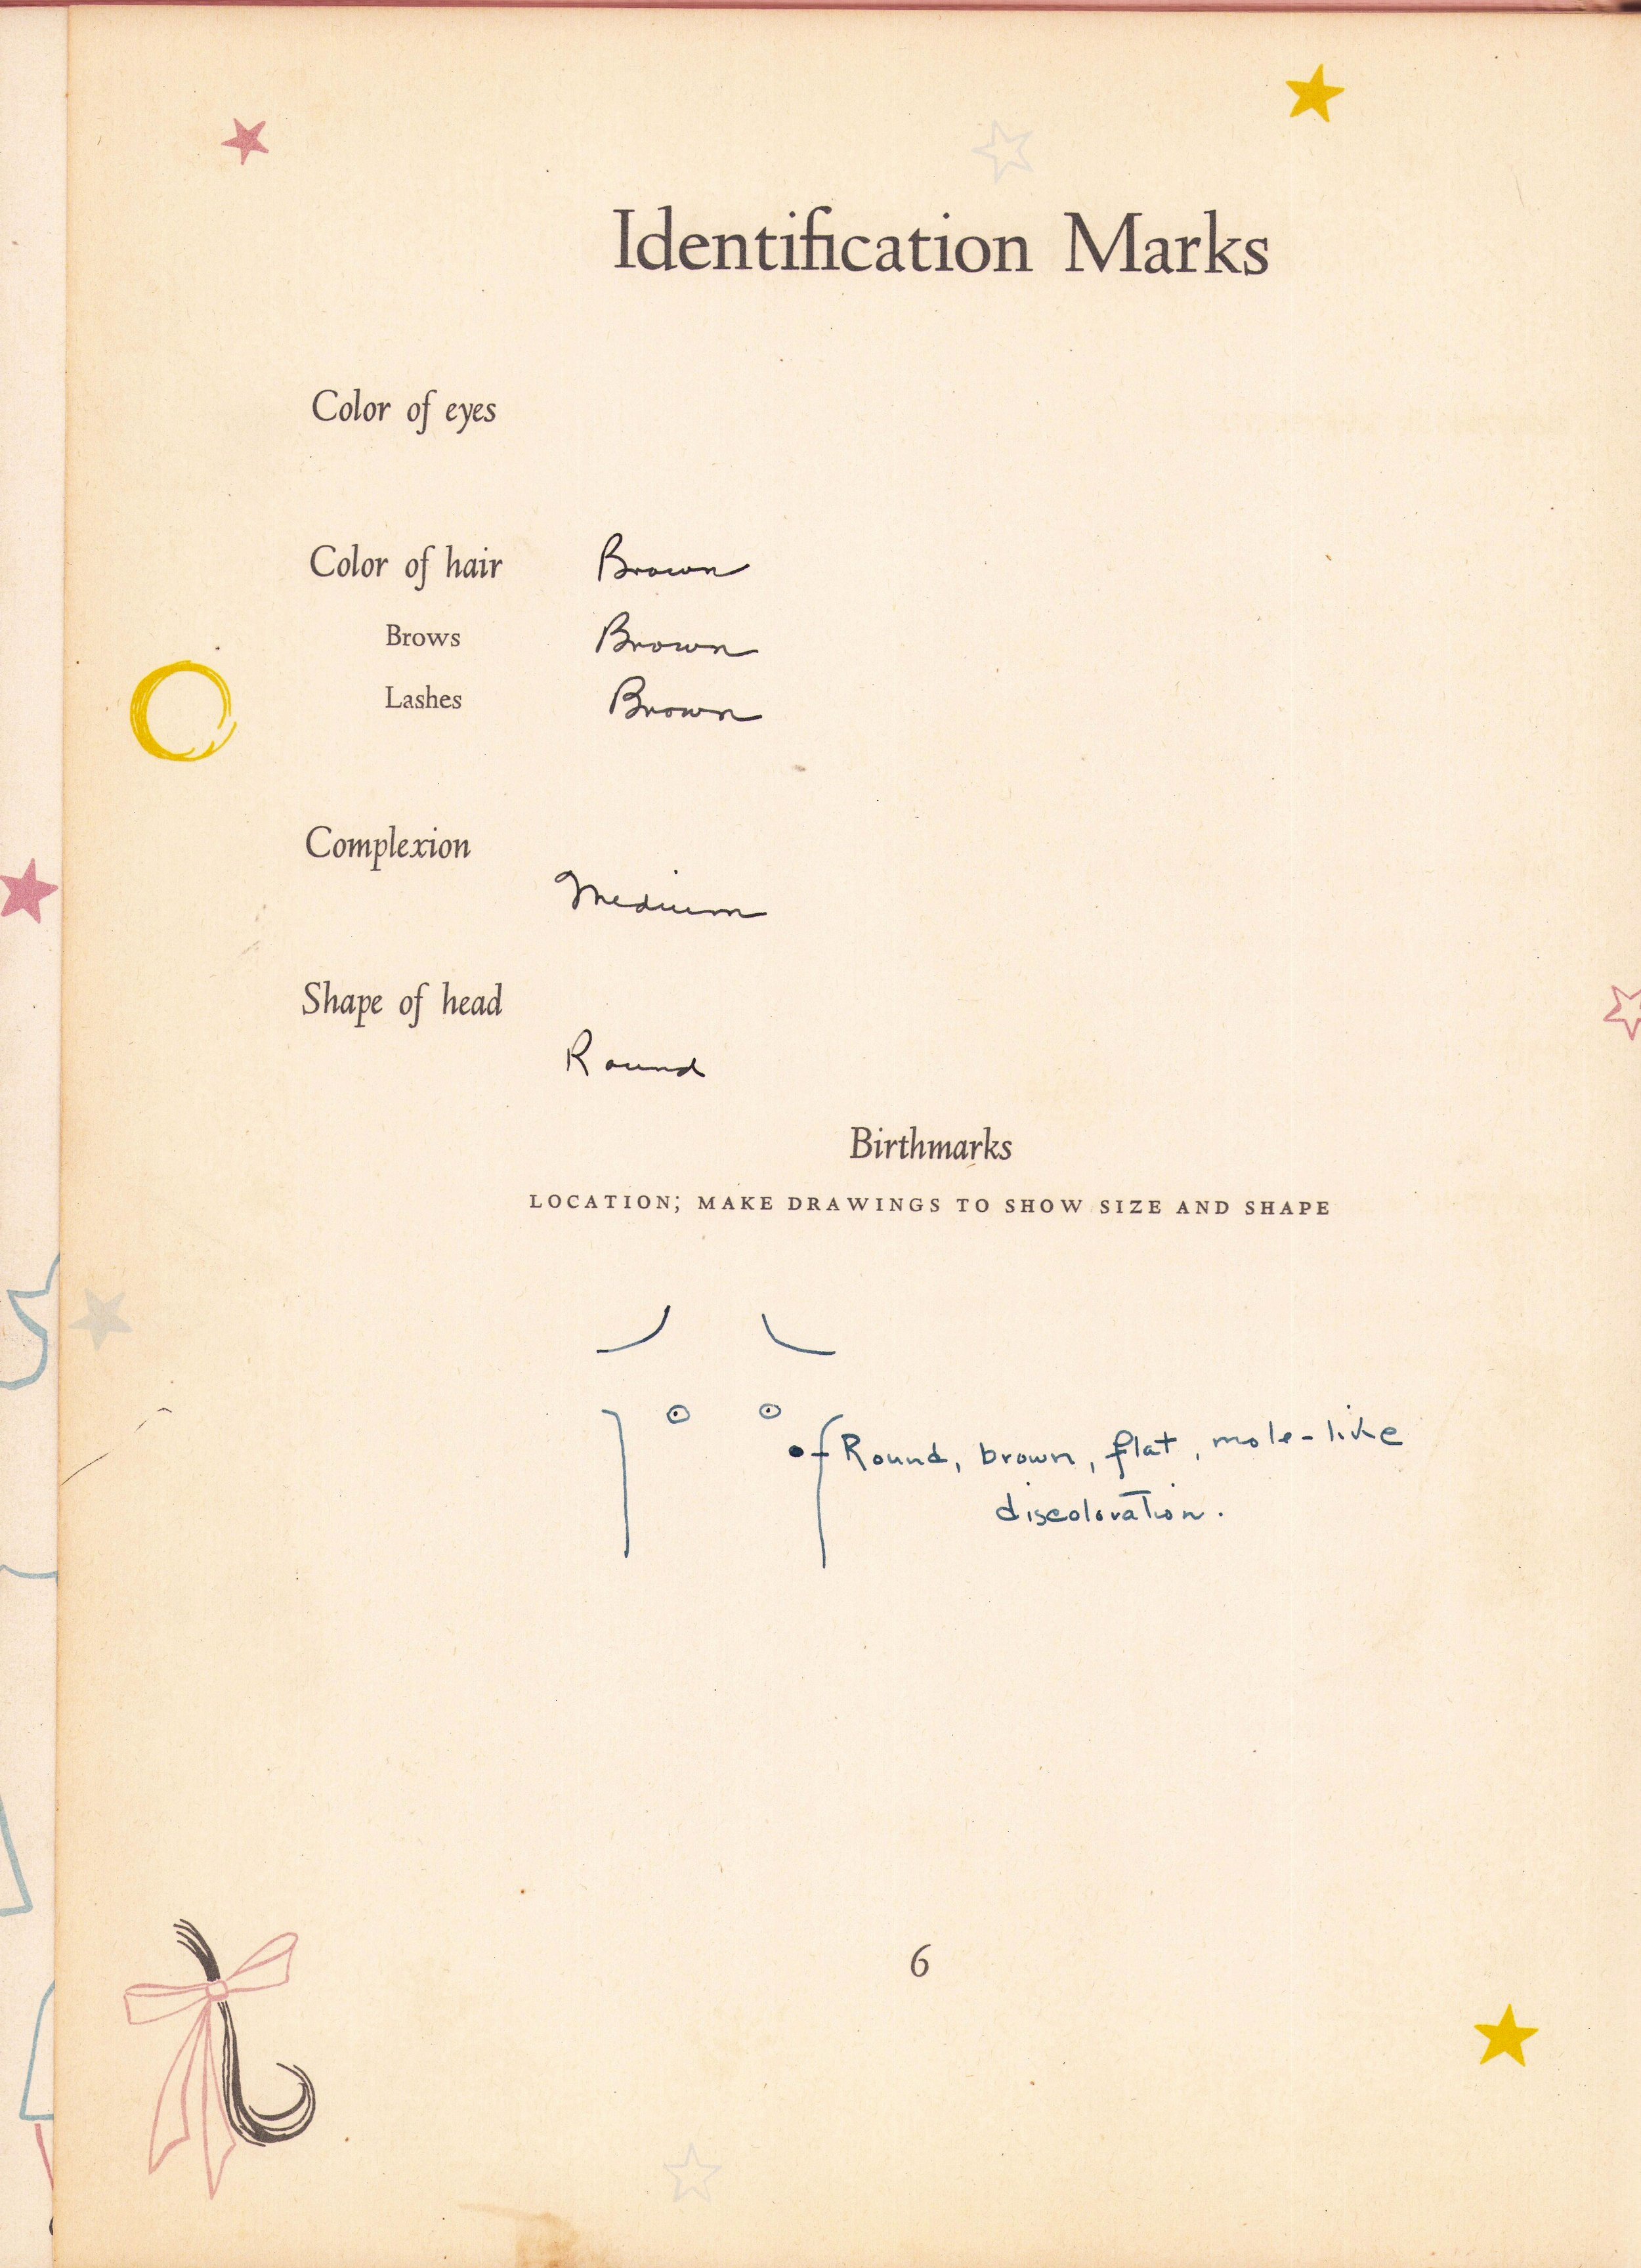 Identification Marks
Color of eyes
Color of hair Brown
Brows Brown
Lashes Brown
Complexion
Medium
Shape of head
Round
Birthmarks
LOCATION; MAKE DRAWINGS TO SHOW SIZE AND SHAPE
Round, brown, flat, mole-like
discoloration.
6